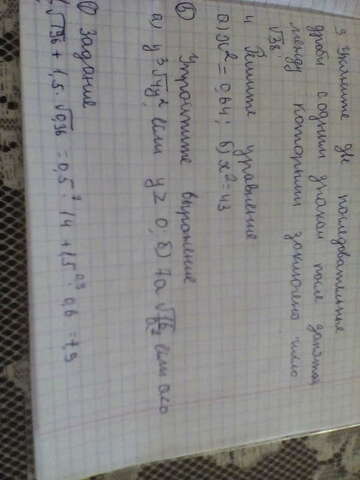 3 Укажите две последовательные
дроби с одним знаком после запятой
между которыми заключено число
√38
4 Решите уравнение
а) x² = 0,64; б) x² = 43
6 Упростите выражение
а) y³√4y², если y ≥ 0; б) 7a√16/a², если a<0
① Задание
√196 + 1,5 · √0,36 = 0,5 · 14 + 1,5 · 0,6 = 7,9